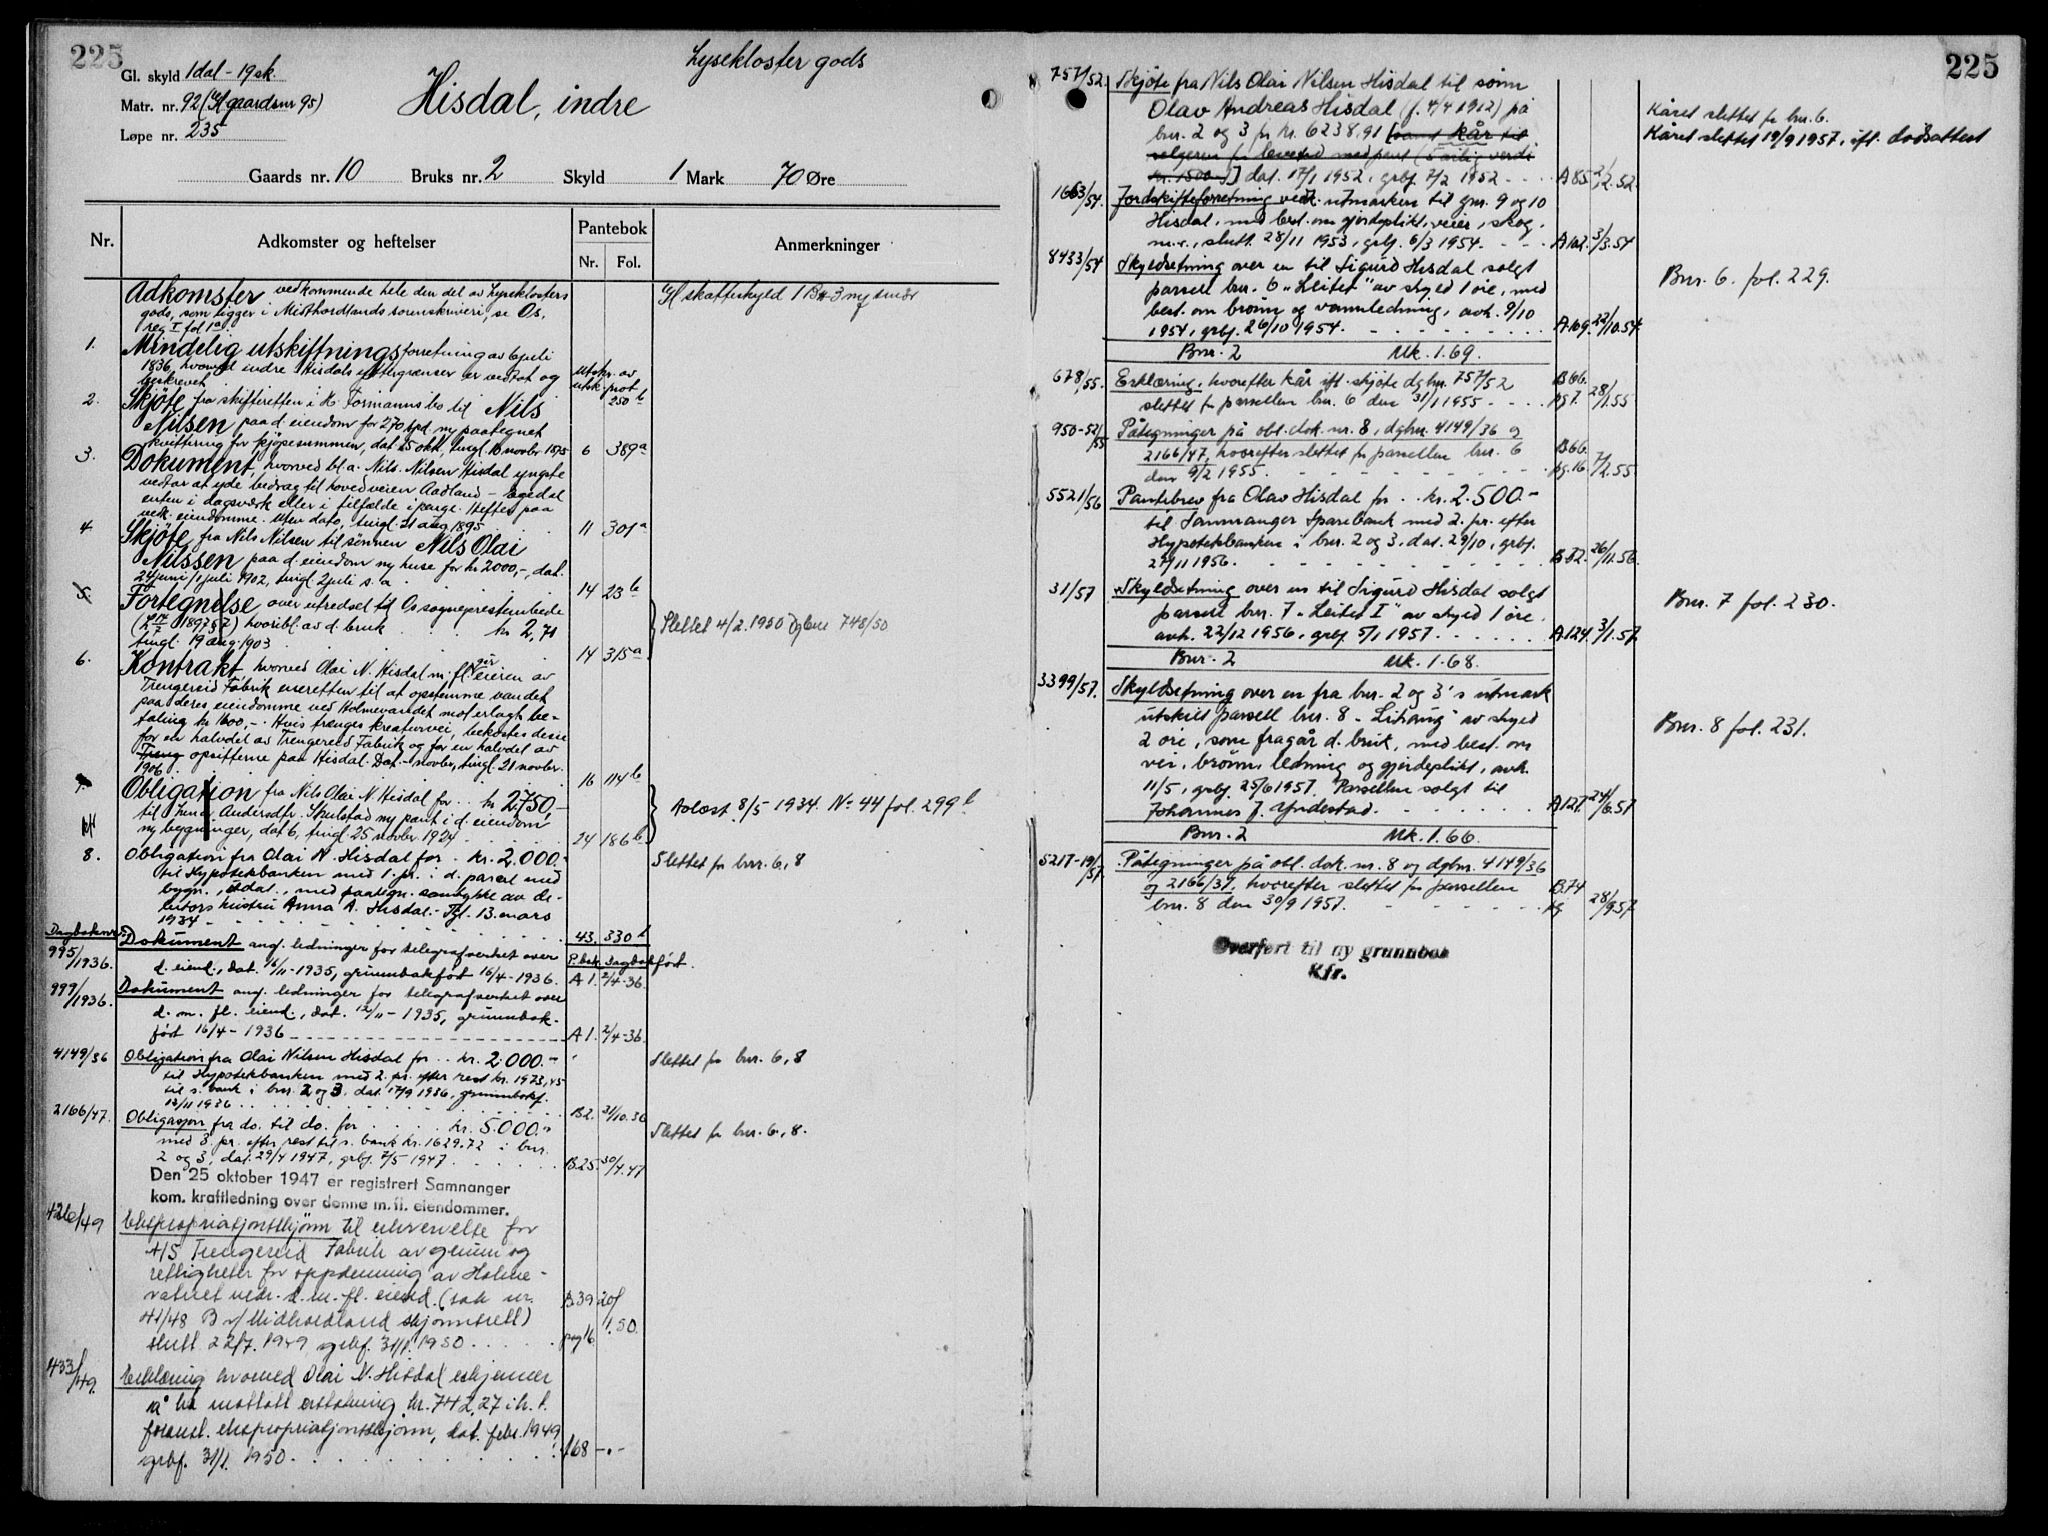 225
Gl. skyld 1 dal - 19 sk.
Matr. nr. 92 (Gl gaardsnr 95)
Løpe nr. 235
Lysekloster gods
Hisdal, indre
Gaards nr. 10 Bruks nr. 2 Skyld 1 Mark 70 Øre
Nr. Adkomster og heftelser Pantebok Anmerkninger
Nr. Fol.
Adkomster vedkommende hele den del av Lyseklosters
gods, som ligger i Midthordlands sorenskriveri, se Os,
reg I fol 1a.
Gl skatteskyld 1 Bp 3 mk smør
1. Mindelig utskiftningsforretning av 6 juli
1836, hvorved indre Hisdals yttergrænser er vedtat og
beskrevet
Utskr. av
utsk. prot
250 b
2. Skjøte fra skifteretten i H. Formanns bo til Nils
Nilsen paa d. eiendom for 270 spd. ny paategnet
kvittering for kjøpesummen, dat. 25 okt, tingl. 10 novbr 1875 6 389a
3. Dokument, hvorved bl.a. Nils Nilsen Hisdal yngste
vedtar at yde bedrag til hovedveien Aadland - Hagedal
enten i dagsværk eller i tilfælde i penge. Heftes paa
vedk. eiendomme. Uten dato, tingl. 21 aug 1895 11 301a
4. Skjøte, fra Nils Nilsen til sønnen Nils Olai
Nilssen paa d. eiendom ny huse for kr 2000,-, dat.
24 juni/1 juli 1902, tingl 2 juli s. a. 14 23 b
5. Fortegnelse over utredsel til Os sogneprestembede
(L 17/7 1897 § 2) hvoribl. av d. bruk kr 2,71
tingl. 19 aug. 1903 14 315a
Slettet 4/2. 1950 Dgbnr 748/50
6. Kontrakt hvorved Olai N. Hisdal m. fl. gir eieren av
Trengereid Fabrik eneretten til at opstemme vandet
paa deres eiendomme ved Holmevandet mot erlagt be-
taling kr 1600,-. Hvis trenges kreaturvei, bekostes desse
for en halvdel av Trengereid Fabrik og for en halvdel av
Treng opsitterne paa Hisdal. Dat. - novbr, tingl. 21 novbr.
1906. 16 114 b
7. Obligation fra Nils Olai N. Hisdal for .. kr 2,750,-
til Andersdtr. Skulstad ny pant i d. eiendom
ny bygninger, dat 6, tingl. 25 novbr. 1924 24 186 b
Avløst 8/5 1934. No 44 fol. 299 b
8. Obligation fra Olai N. Hisdal for . kr. 2.000.-
til Hypotekbanken med 1. pr. i d. parcel med
bygn., utdat., med paategn. samtykke av de-
bitors hustru Anna A. Hisdal. - Tgl. 13. mars
1934 43. 330 b
Slettet for bnr. 6, 8
Dagboknr.
995/1936. Dokument ang. ledninger for telegrafverket over
d. eiend., dat. 16/11-1935, grunnbokført 16/4-1936. P.bok Dagbokført. A 1. 2/4-36.
999/1936. Dokument ang. ledninger for telegrafverket over
d. m. fl. eiend., dat. 12/11-1935, grunnbok-
ført 16/4-1936 A 1. 2/4-36.
4149/36 Obligation fra Olai Nilsen Hisdal for .. kr. 2.000.-
til Hypotekbanken med 2. pr. efter rest kr. 1973,45
til s. bank i bnr. 2 og 3. dat. 17/9 1936, grunnbokf.
12/11 1936 B 2. 31/10.36
Slettet for bnr. 6, 8
2166/47. Obligasjon fra do. til do. for kr. 5.000.-
med 3. pr. efter rest til s. bank kr. 1629.72 i bnr.
2 og 3, dat. 29/4 1947, grbf. 7/5 1947. B.25. 30/4.47
Slettet for bnr. 6, 8.
Den 25 oktober 1947 er registrert Samnanger
kom. kraftledning over denne m. fl. eiendommer.
426/49 Ekspropriasjonsskjønn til erhvervelse for
A/S Trengereid Fabrik av grunn og
rettigheter for oppdemming av Holme-
vatnet vedr. d. m. fl. eiend. (sak nr.
41/48 B v/ Midhordland skjønnsrett)
slutt. 22/7. 1949 grbf. 31/1. 1950 B.39 pag 16 20/1.50.
433/49. Erklæring hvorved Olai N. Hisdal erkjenner
å ha mottatt erstatning kr. 742,27 i h. t.
foranst. ekspropriasjonsskjønn, dat. febr. 1949
grbf. 31/1. 1950 A68 -.-
225
757/52. Skjøte fra Nils Olai Nilsen Hisdal til sønn
Olav Andreas Hisdal (f. 4/4 1912) på
bnr. 2 og 3 for kr. 6238,91 [samt kår til
selgeren for levetid med pant (5 årlig verdi
kr. 1500.-)] dat. 17/1 1952, grbf. 7/2 1952 A 85 2/2.52.
Kåret slettet for bnr. 6.
Kåret slettet 19/9 1957, ifl. dødsattest
1663/54. Jordskifteforretning vedk. utmarken til gnr. 9 og 10
Hisdal, med best. om gjerdeplikt, veier, skog,
m. v., slutt. 28/11 1953, grbf. 6/3 1954. A102. 3/3.54
8433/54 Skyldsetning over en til Sigurd Hisdal solgt
parsell bnr. 6 "Leitet" av skyld 1 øre, med
best. om brønn og vannledning, avh. 9/10
1954, grbf. 26/10 1954. A.109. 22/10.54.
Bnr. 6. fol. 229.
Bnr. 2 Mk. 1.69.
678/55. Erklæring, hvorefter kår ifl. skjøte dgbnr. 757/52
slettet for parsellen bnr. 6 den 31/1 1955 B 66. pg 7. 28/1.55
950-52/55 Påtegninger på obl. dok. nr. 8, dgbnr. 4149/36 og
2166/47, hvorefter slettet for parsellen bnr. 6
den 9/2 1955. B66. pg. 16. 7/2.55
5521/56 Pantebrev fra Olav Hisdal for .. kr. 2.500.-
til Samnanger Sparebank med 2. pr. efter
Hypotekbanken i bnr. 2 og 3. dat. 29/10, grbf.
27/11 1956. B 82. 26/11.56.
31/57 Skyldsetning over en til Sigurd Hisdal solgt
parsell bnr. 7 "Leitet I" av skyld 1 øre.
avh. 22/12 1956, grbf 5/1 1957. A124. 3/1.57.
Bnr. 7 fol. 230.
Bnr. 2 Mk. 1.68.
3399/57. Skyldsetning over en fra bnr. 2 og 3's utmark
utskilt parsell bnr. 8 "Lihaug" av skyld
2 øre, som fragår d. bruk, med best. om
vei, brønn, ledning og gjerdeplikt, avh.
11/5, grbf. 25/6 1957. Parsellen solgt til
Johannes J. Yndestad. A127. 24/6.57
Bnr. 8 fol. 231.
Bnr. 2 Mk. 1.66.
5217-19/57. Påtegninger på obl. dok. nr. 8 og dgbnr. 4149/36
og 2166/37, hvorefter slettet for parsellen
bnr. 8 den 30/9 1957. B74 pg 28/9.57
Overført til ny grunnbok
Kfr.